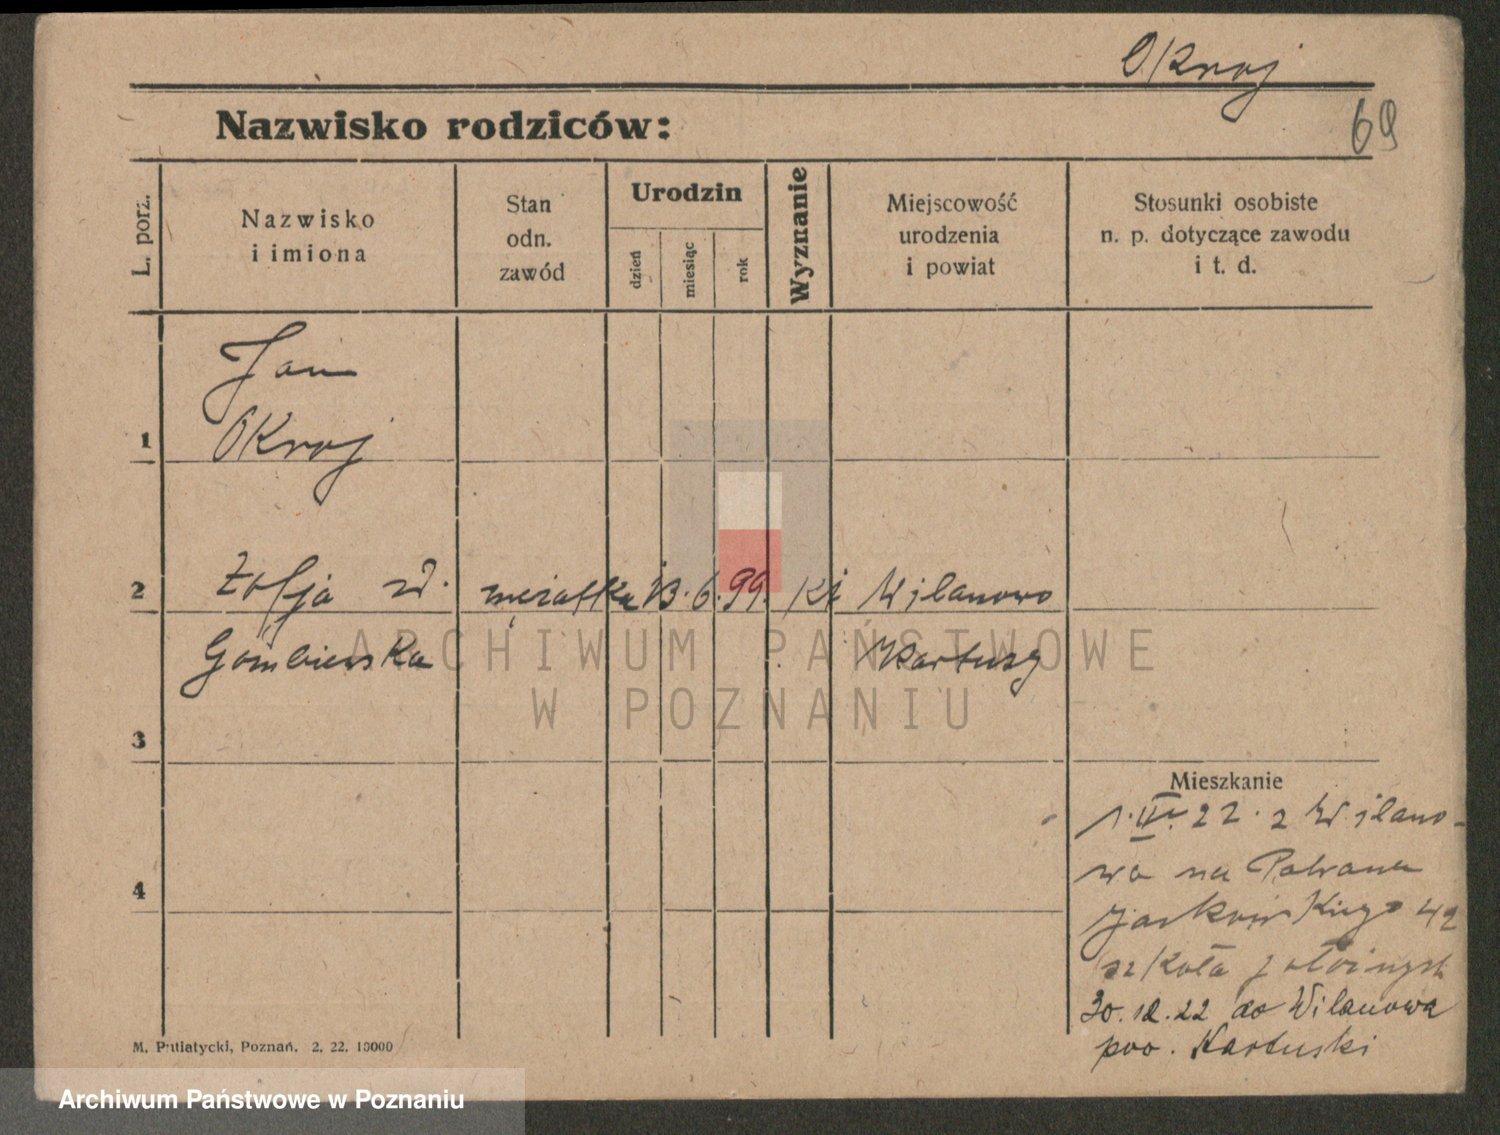 Okroj
69
Nazwisko rodziców:
L. porz.
Nazwisko
i imiona
Stan
odn.
zawód
Urodzin
dzień
miesiąc
rok
Wyznanie
Miejscowość
urodzenia
i powiat
Stosunki osobiste
n. p. dotyczące zawodu
i t. d.
Jan
1 Okroj
2 Zofja zd. mężatka 13. 6. 99. kt Wilanowo
Gombierska Kartuzy
ARCHIWUM PAŃSTWOWE
W POZNANIU
3
Mieszkanie
1. IV. 22. z Wilano-
wa na
4
Jackowskiego 42
szkoła położnych
30. 12. 22 do Wilanowa
pow. Kartuski
M. Putiatycki, Poznań. 2. 22. 10000
Archiwum Państwowe w Poznaniu